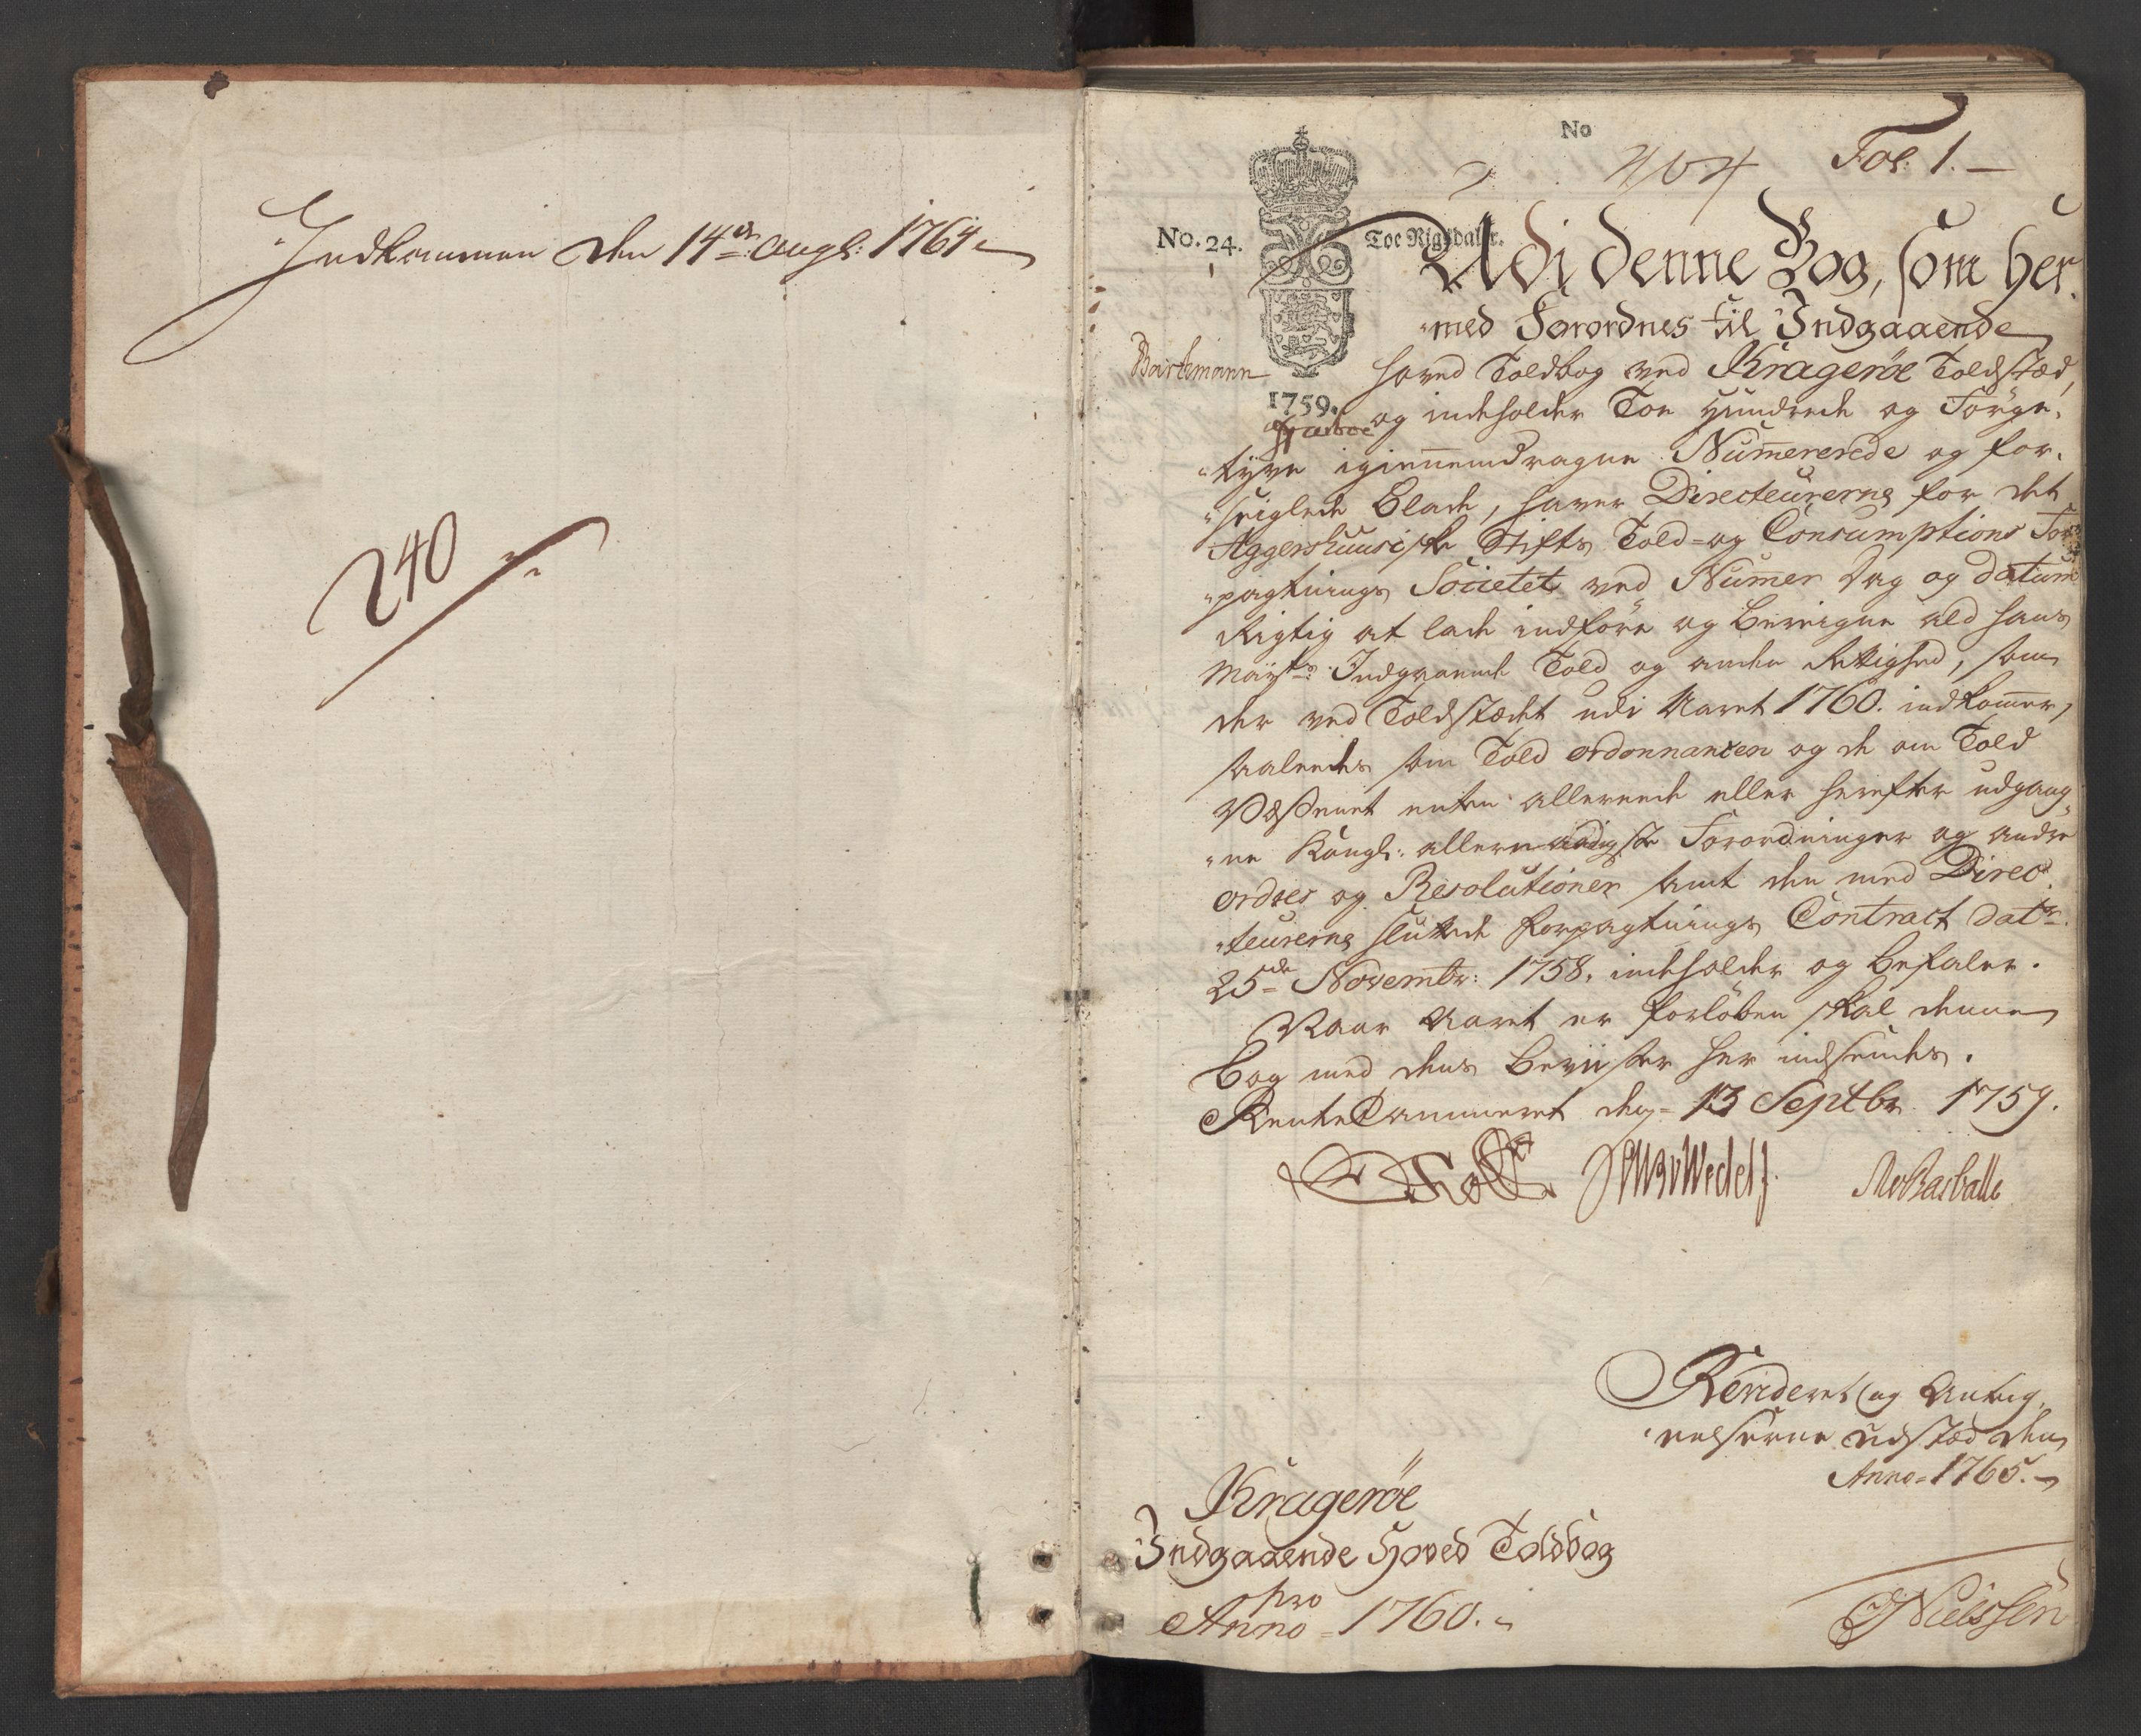 Indkommen den 14de Augs: 1764
240
No
Fol: 1.
No. 24.
Toe Rigsdaler.
1759.
Bartemann
Udi denne Bog, som her-
med Forordnes til Indgaaende
Hoved Toldbog ved Kragerøe Toldstæd,
og indeholder Toe Hundrede og Førge-
tyve igiennemdragne Numererede og for-
seiglede Blade, haver Directeurerne for det
Aggershuusiske Stifts Told- og Consumptions For-
pagtnings Societet ved Numer Dag og Datum
Rigtig at lade indføre og bereigne ald Hans
Mayts: Indgaaende Told og anden Rettighed, som
der ved Toldstædet udi Aaret 1760. indkommer,
saaledes som Told Ordonnancen og de om Told
Wæsenet enten allereede eller herefter udgang-
ne Kongl: allernaadigste Forordninger og andre
Ordres og Resolutioner samt den med Direc-
teurerne sluttede Forpagtnings Contract dat:
25de Novembr: 1758. indeholder og befaler.
Naar Aaret er forløben skal denne
Bog med dens Beviiser her indsendes.
RenteCammeret den 13 Septbr 1759.
Holst
Wedel
Barballe
Revideret og Anteg-
nelserne udstæd den
Anno 1765.
Kragerøe
Indgaaende Hoved Toldbog
pro
Anno 1760.
Nielssen